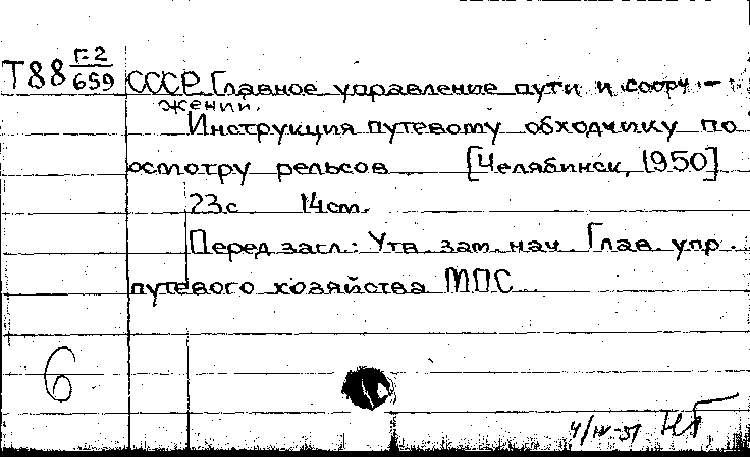 Т88 Г-2/659 СССР. Главное управление пути и сооружений.
Инструкция путевому обходчику по
осмотру рельсов [Челябинск, 1950]
23с 14см.
Перед загл.: Утв. зам. нач. Глав. упр.
путевого хозяйства МПС
6
4/IV-51